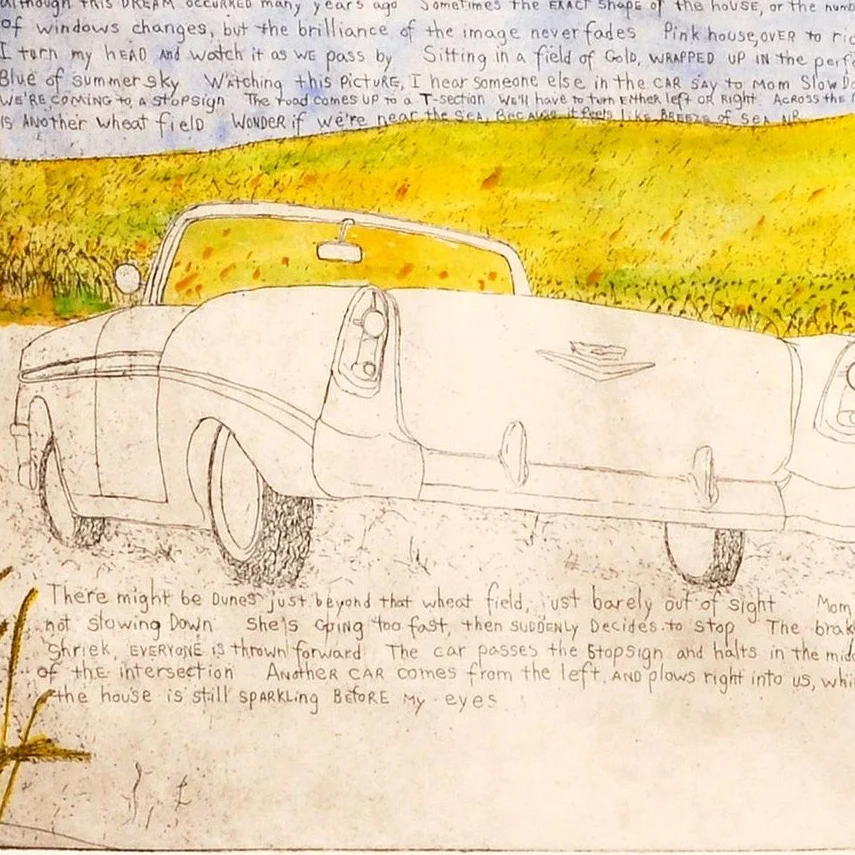 although this DREAM occurred many years ago Sometimes the EXACT shape of the house, or the numb
of windows changes, but the brilliance of the image never fades Pink house, over to ri
I turn my head and watch it as we pass by Sitting in a field of Gold, WRAPPED UP IN the perfe
Blue of summer sky Watching this PICTURE, I hear someone else in the CAR say to Mom Slow Do
WE'RE COMING to a stopsign The road comes up to a T-section We'll have to turn EitHER left or Right Across the
is ANOTHER wheat field Wonder if we're near the SEA, Because it feels like BREEZE of SEA AIR
There might be Dunes just beyond that wheat field, just barely out of sight Mom
not slowing Down She's going too fast, then SUDDENLY Decides to stop The brak
Shriek, EVERYONE is thrown forward The car passes the Stopsign and halts in the midd
of the intersection Another CAR comes from the left, AND plows right into us, whi
the house is still SPARKLING BEFORE My eyes